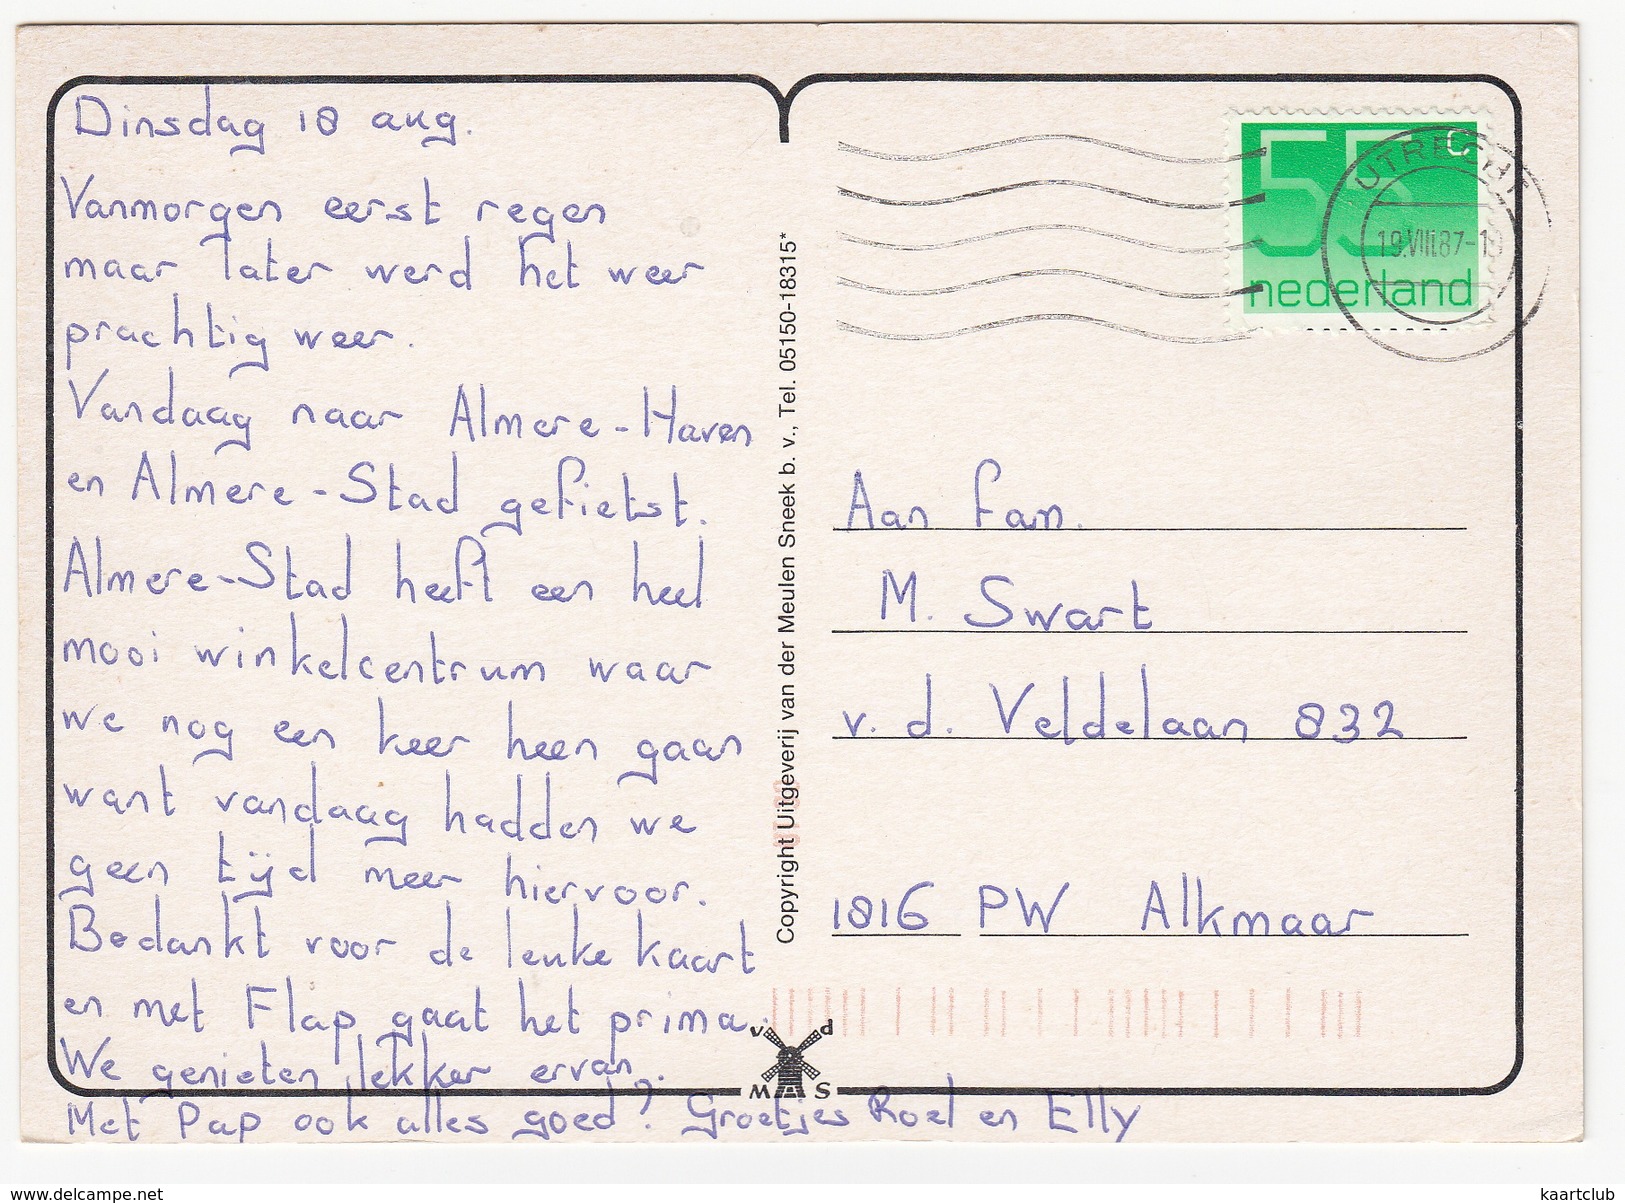 Dinsdag 18 aug.
Vanmorgen eerst regen
maar later werd het weer
prachtig weer.
Vandaag naar Almere-Haven
en Almere-Stad gefietst.
Almere-Stad heeft een heel
mooi winkelcentrum waar
we nog een keer heen gaan
want vandaag hadden we
geen tijd meer hiervoor.
Bedankt voor de leuke kaart
en met Flap gaat het prima.
We genieten lekker ervan.
Met Pap ook alles goed? Groetjes Roel en Elly
Copyright Uitgeverij van der Meulen Sneek b. v., Tel. 05150-18315*
v d
M S
55 c
nederland
UTRECHT
19.VIII.87-18
Aan Fam.
M. Swart
v. d. Veldelaan 832
1816 PW Alkmaar
www.delcampe.net
kaartclub